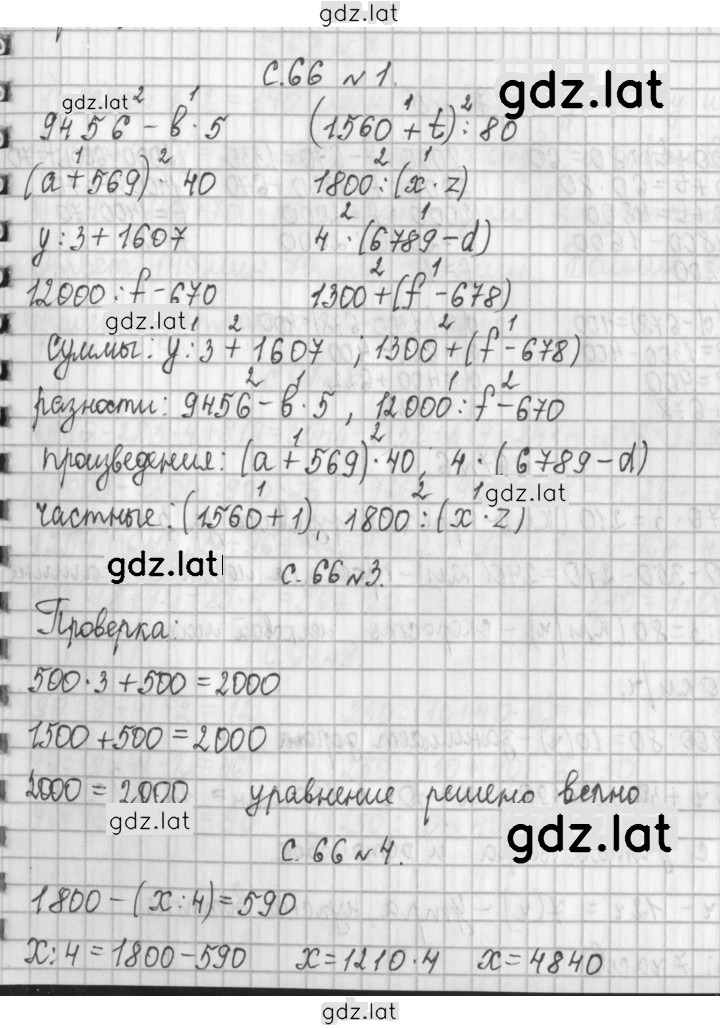 gdz.lat
с.66 №1. gdz.lat
gdz.lat 2 1 1 2
9456 - в · 5 (1560 + t) : 80
1 2 2 1
(a + 569) · 40 1800 : (x · z)
2 1
y : 3 + 1607 4 · (6789 - d)
2 1
12000 : f - 670 1300 + (f - 678)
gdz.lat 1 2 2 1
Суммы: y : 3 + 1607 ; 1300 + (f - 678)
2 1 1 2
разности: 9456 - в · 5 , 12000 : f - 670
1 2
произведения: (a + 569) · 40, 4 · (6789 - d)
1 2 1 gdz.lat
частные: (1560 + 1), 1800 : (x · z)
gdz.lat с. 66 №3.
Проверка:
500 · 3 + 500 = 2000
1500 + 500 = 2000
2000 = 2000 уравнение решено верно
gdz.lat с. 66 №4. gdz.lat
1800 - (x : 4) = 590
x : 4 = 1800 - 590 x = 1210 · 4 x = 4840
gdz.lat